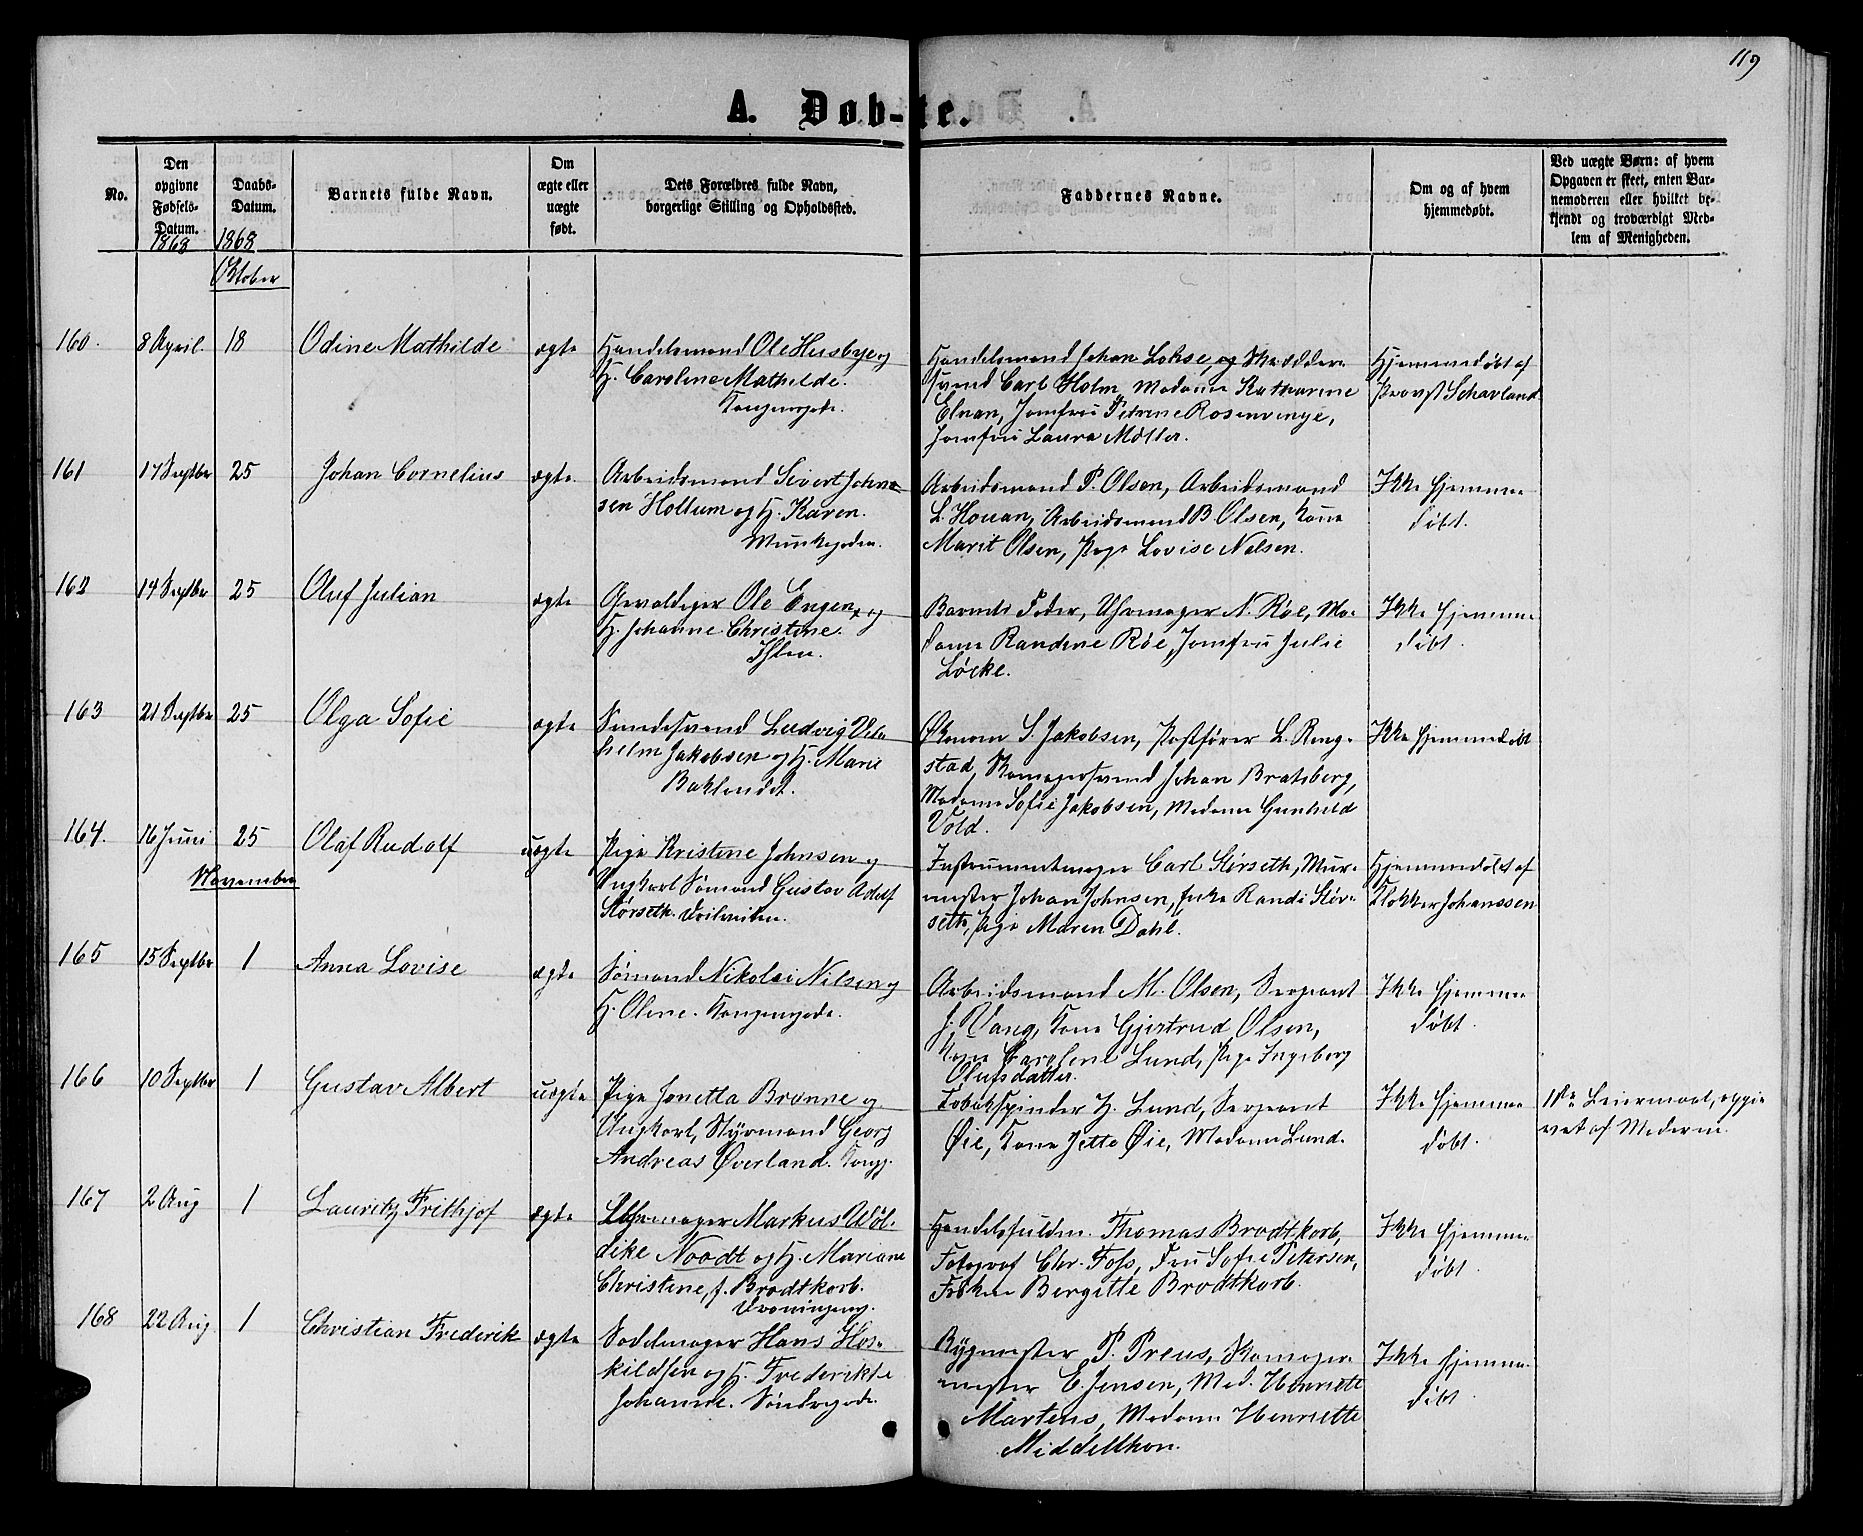 119
A. Døb-te.
No.
Den opgivne Fødsels-Datum.
Daabs-Datum.
Barnets fulde Navn.
Om ægte eller uægte født.
Dets Forældres fulde Navn, borgerlige Stilling og Opholdssted.
Faddernes Navne.
Om og af hvem hjemmedøbt.
Ved uægte Børn: af hvem Opgaven er skeet, enten Barnemoderen eller hvilket bekjendt og troværdigt Medlem af Menigheden.
1868 1868
Oktober
160. 8 April. 18 Odine Mathilde ægte
Handelsmand Ole Husbye og
H. Caroline Mathilde.
Kongensgade.
Handelsmand Johan Lohse, og Skrædder
svend Carl Holm, Madame Katharine
Elvan, Jomfru Petrine Rosenvinge,
Jomfru Laura Møller.
Hjemmedøbt af
Provst Schavland
161 17 Septbr 25 Johan Cornelius ægte.
Arbeidsmand Sivert John
sen Hollum og H. Karen.
Munkegaden.
Arbeidsmand P. Olsen, Arbeidsmand
L. Houan, Arbeidsmand B Olsen, Kone
Marit Olsen, Pige Lovise Nelsen.
Ikke hjemme
døbt.
162 14 Septbr 25 Oluf Julian ægte
Gevaldiger Ole Engen, og
H. Johanne Christine.
Ihlen.
Barnets Fader, Uhrmager N. Røe, Ma-
dame Randine Røe, Jomfru Julie
Løcke.
Ikke hjemme
døbt.
163 21 Septbr 25 Olga Sofie ægte
Smedesvend Ludvig Vil
helm Jakobsen og H. Marie
Baklandet.
Økonom S. Jakobsen, Postfører L. Reng-
stad, Skomagersvend Johan Bratsberg,
Madame Sofie Jakobsen, Madame Gunhild
Vold.
Ikke hjemmedøbt
164. 16 Juni 25 Olaf Rudolf uægte
Pige Kristine Johnsen og
Ungkarl Sømand Gustav Adolf
Størseth. Ihlevien.
Instrumentmager Carl Størseth, Mur-
mester Johan Johnsen, Enke Randi Stør-
seth, Pige Maren Dahl.
Hjemmedøbt af
Klokker Johanssen
November
165 15 Septbr 1 Anna Lovise ægte
Sømand Nikolai Nilsen og
H. Oline. Kongensgade.
Arbeidsmand M. Olsen, Sergeant
J. Vang, Kone Gjertrud Olsen,
Kone Caroline Lund, Pige Ingeborg
Olufsdatter.
Ikke hjemme
døbt.
166 10 Septbr 1 Gustav Albert uægte
Pige Jonetta Brønne og
Ungkarl, Styrmand Georg
Andreas Øverland. Kongg.
Tobakspinder H. Lund, Sergeant
Øie, Kone Jette Øie, Madame Lund.
Ikke hjemme
døbt.
1ste Leiermaal, opgi
vet af Moderen.
167 2 Aug 1 Lauritz Frithjof ægte
Uhrmager Markus Wøl-
dike Noodt og H. Mariane
Christine, f. Brodtkorb.
Dronningeng.
Handelsfuldm. Thomas Brodtkorb,
Fotograf Chr. Foss, Fru Sofie Petersen,
Frøken Bergitte Brodtkorb.
Ikke hjemme
døbt.
168 22 Aug 1 Christian Frederik ægte
Sadelmager Hans Hos-
kildsen og H. Frederikke
Johanne. Søndregade.
Rygmester P. Preus, Skomager-
mester E. Jensen, Mad. Henriette
Martens, Madame Henriette
Middelthon.
Ikke hjemme
døbt.